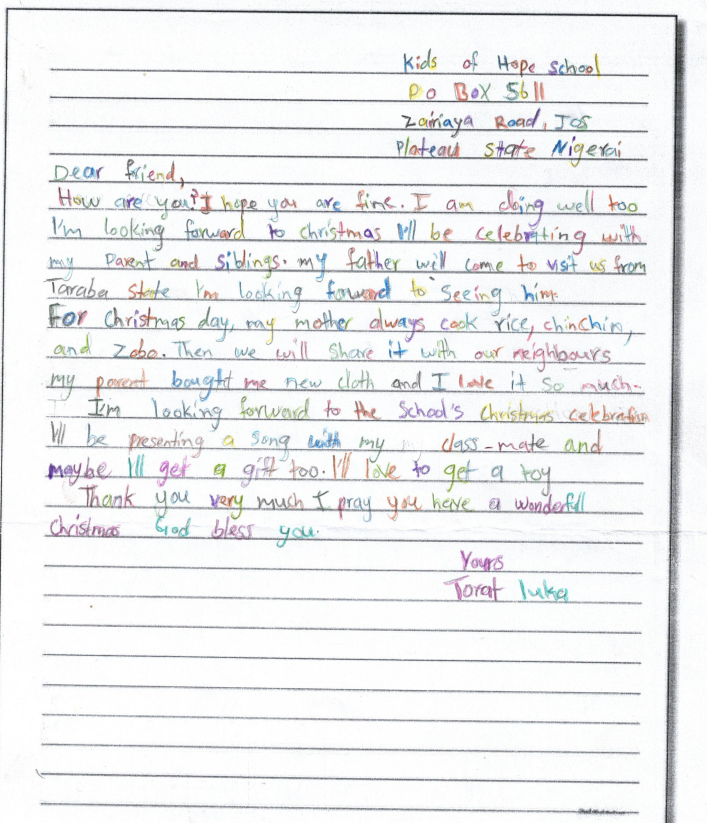 Kids of Hope School
P O BOX 5611
Zairiaya Road, Jos
Plateau State Nigerai
Dear friend,
How are you? I hope you are fine. I am doing well too
I'm looking forward to christmas I'll be celebrating with
my parent and siblings. my father will come to visit us from
Taraba state I'm looking forward to seeing him.
For christmas day, my mother always cook rice, chinchin,
and Zobo. Then we will share it with our neighbours
my parent bought me new cloth and I love it so much.
I'm looking forward to the school's christmas celebration
I'll be presenting a song with my class-mate and
maybe I'll get a gift too. I'll love to get a toy
Thank you very much I pray you have a wonderful
christmas God bless you.
Yours
Torat luka